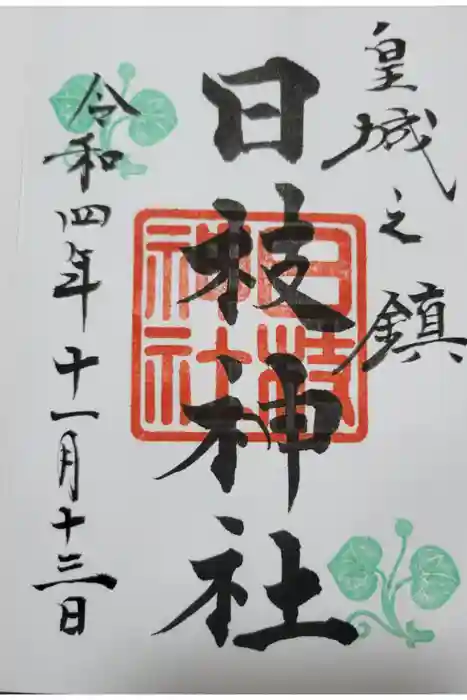 皇城之鎮
日枝神社
日枝
神社
令和四年十一月十三日